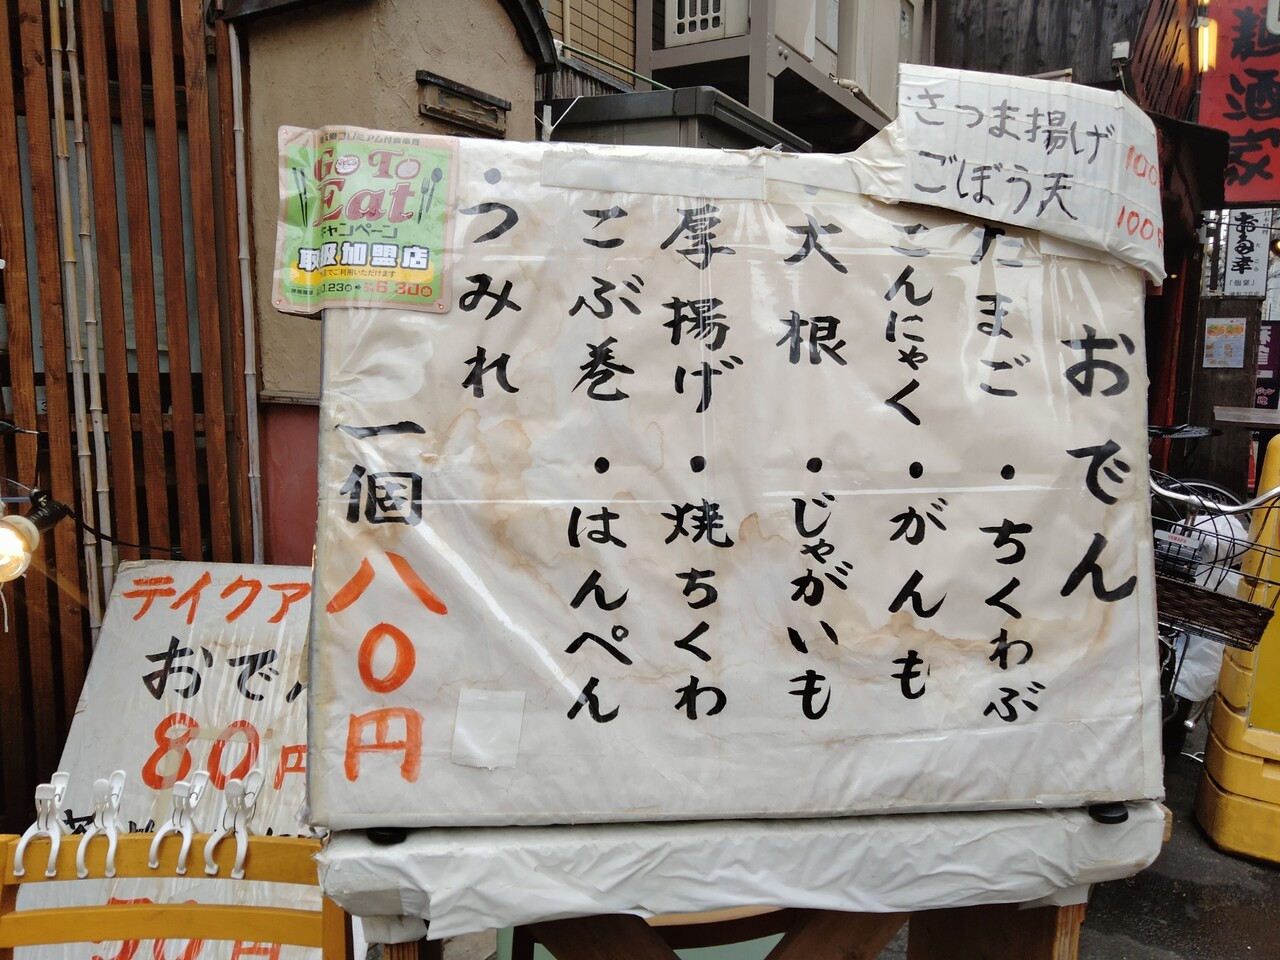 おでん
たまご
・ちくわぶ
こんにゃく
・がんも
・大根
・じゃがいも
厚揚げ
・焼ちくわ
こぶ巻
・はんぺん
・つみれ
一個八〇円
さつま揚げ 100
ごぼう天 100円
Go To
Eat
キャンペーン
取扱加盟店
テイクア
おで
80円